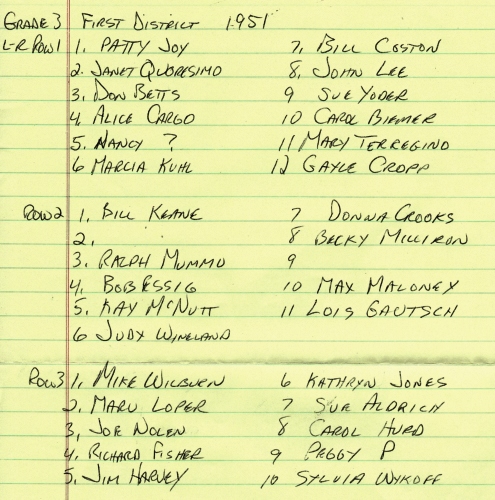 GRADE 3 FIRST DISTRICT 1951
L-R ROW 1 1. PATTY JOY 7. BILL COSTON
2. JANET QUORESIMO 8. JOHN LEE
3. DON BETTS 9 SUE YODER
4. ALICE CARGO 10 CAROL BIEMER
5. NANCY ? 11 MARY TERREGINO
6 MARCIA KUHL 12 GAYLE CROPP
ROW 2 1. BILL KEANE 7 DONNA CROOKS
2. 8 BECKY MILLIRON
3. RALPH MUMMO 9
4. BOB ESSIG 10 MAX MALONEY
5. KAY McNUTT 11 LOIS GAUTSCH
6 JUDY WINELAND
ROW 3 1. MIKE WILBURN 6 KATHRYN JONES
2. MARV LOPER 7 SUE ALDRICH
3, JOE NOLEN 8 CAROL HURD
4. RICHARD FISHER 9 PEGGY P
5. JIM HARVEY 10 SYLVIA WYKOFF